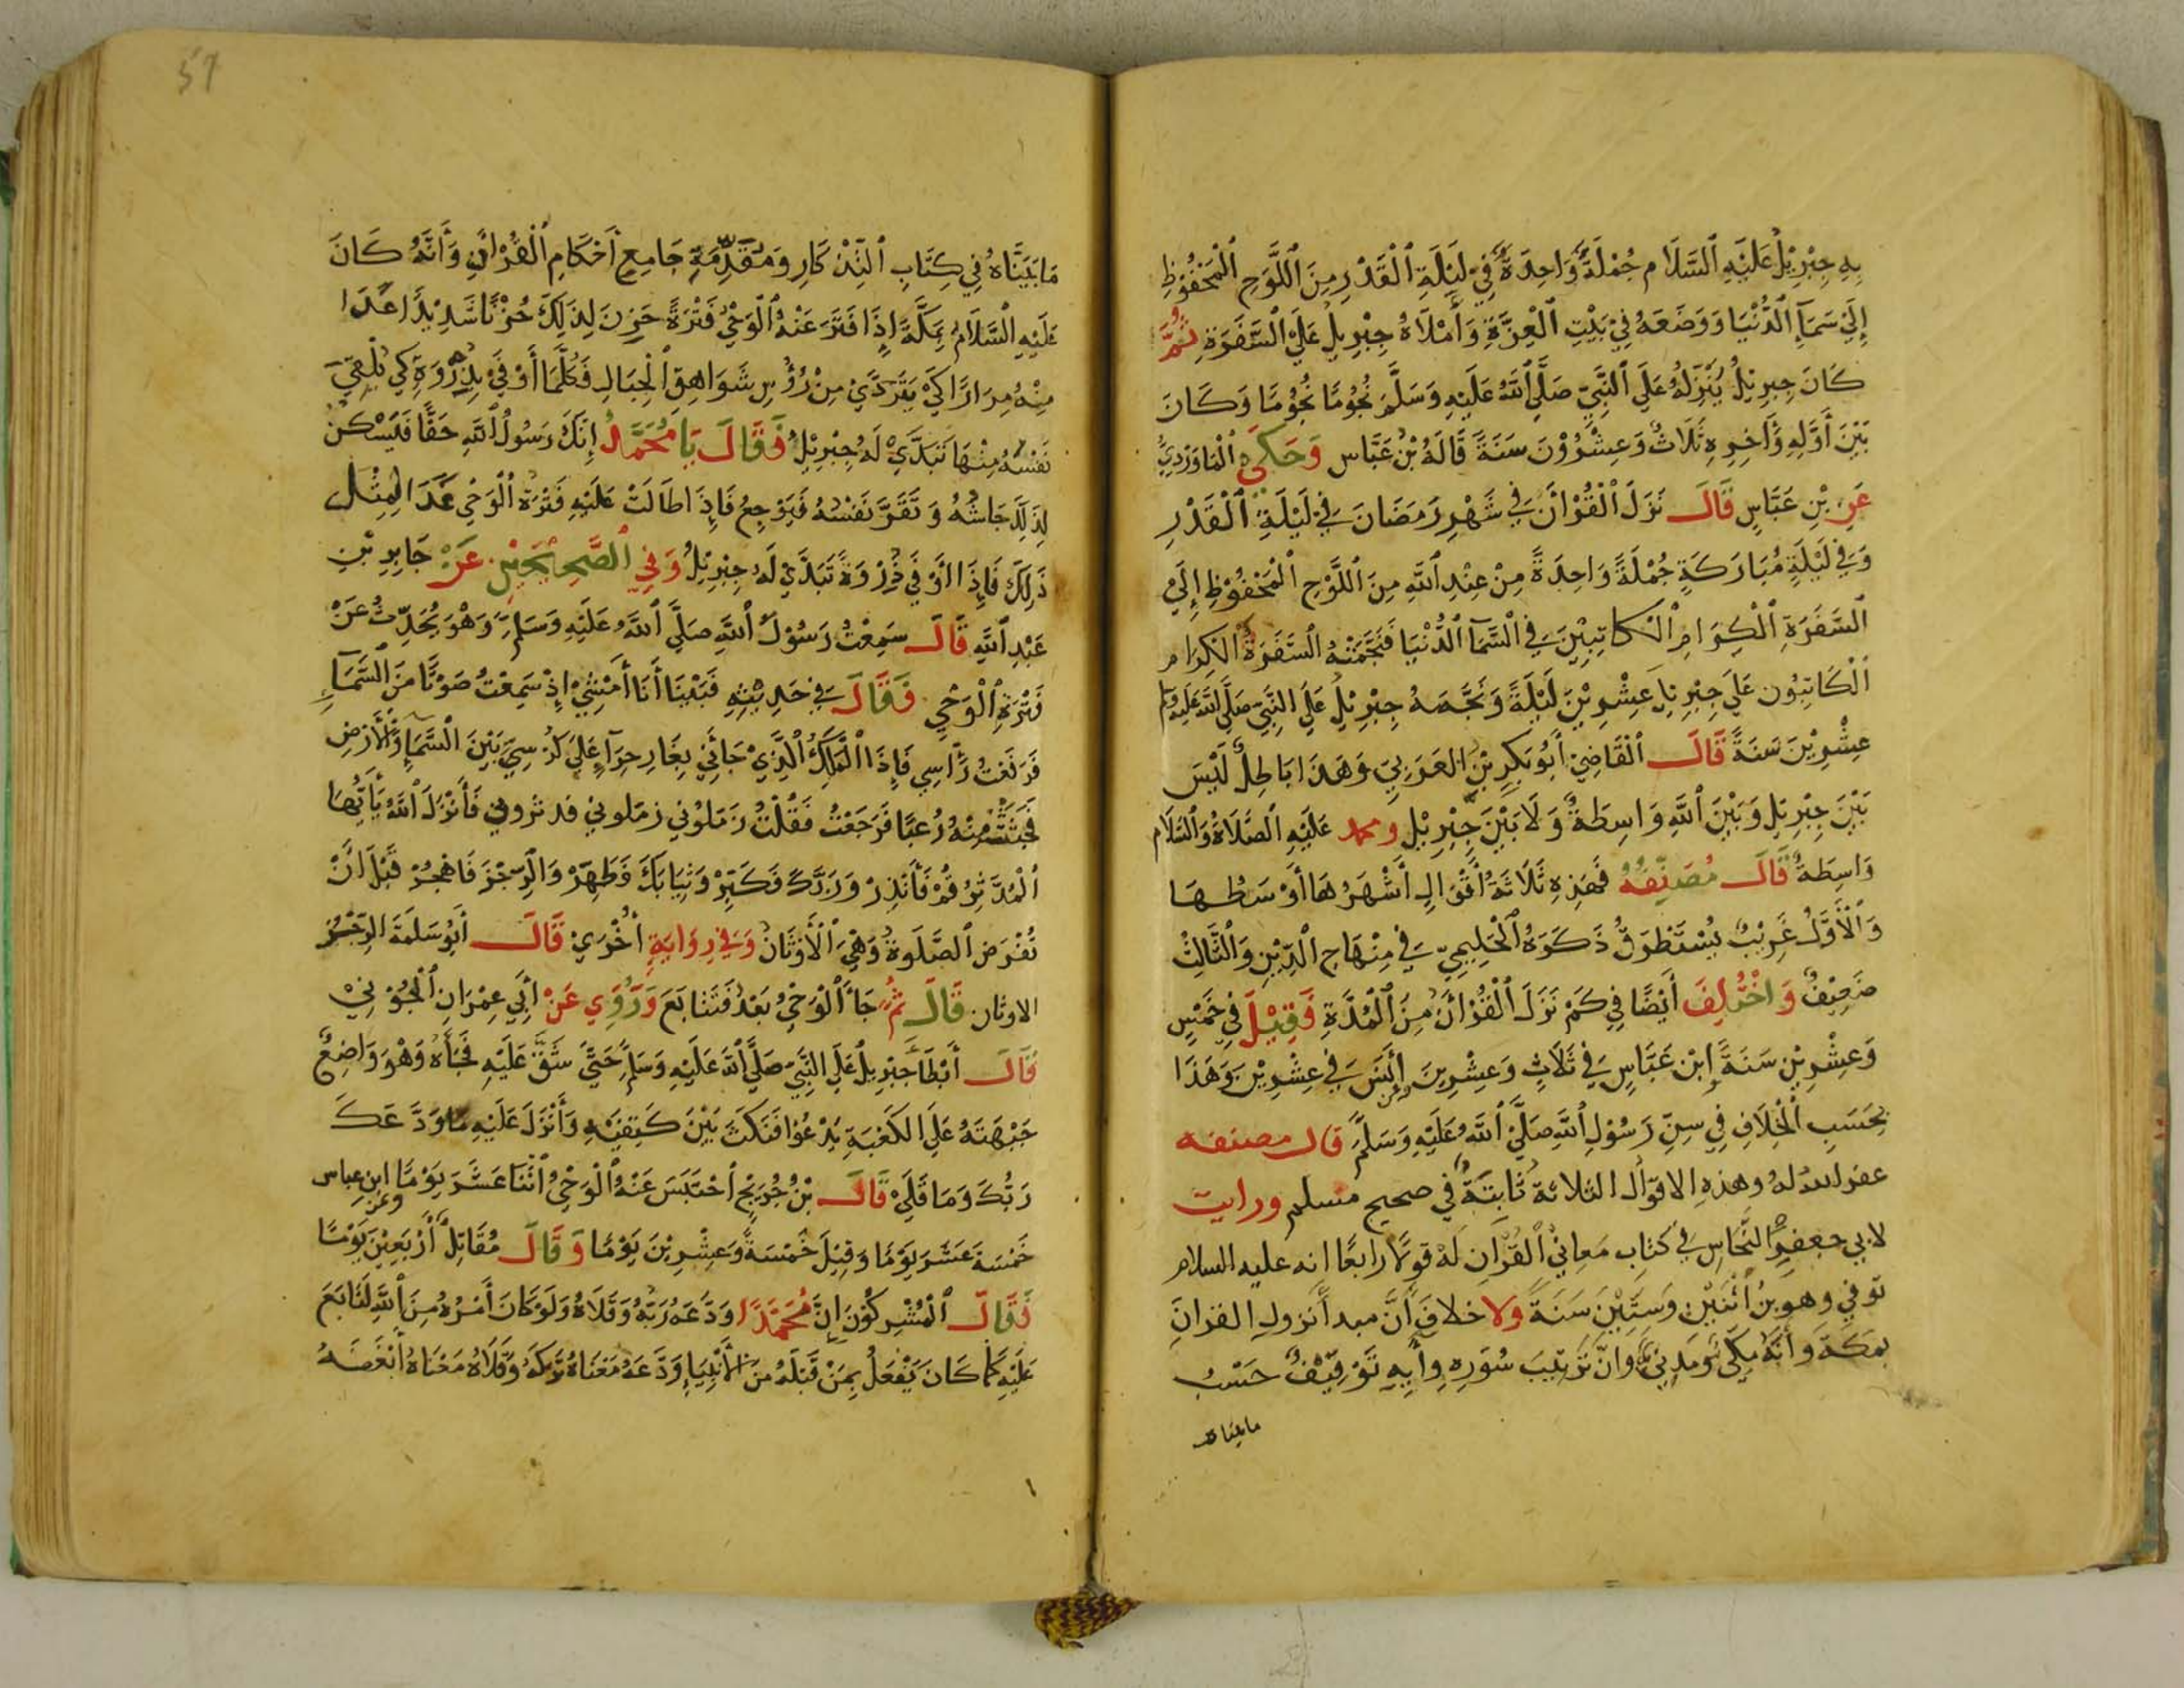 بِهِ جِبْرِيْلُ عَلَيْهِ ٱلسَّلَام جُمْلَةً وَاحِدَةً فِيْ لَيْلَةِ ٱلْقَدْرِ مِنَ ٱللَّوْحِ ٱلْمَحْفُوْظِ
إِلَيْ سَمَآءِ ٱلدُّنْيَا وَوَضَعَهُ فِيْ بَيْتِ ٱلْعِزَّةِ وَأَمْلَاهُ جِبْرِيلُ عَلَيْ ٱلسَّفَرَةِ ثُمَّ
كَانَ جِبْرِيْلُ يُنَزِّلُهُ عَلَي ٱلنَّبِيِّ صَلَّي ٱللَّهُ عَلَيْهِ وَسَلَّمَ نُجُوْمًا نُجُوْمًا وَكَانَ
بَيْنَ أَوَّلِهِ وَأٰخِرِهِ ثَلَاثٌ وَعِشْرُوْنَ سَنَةً قَالَهُ بْنُ عَبَّاس وَحَكَي ٱلْمَاوَرْدِيُّ
عَنِ بْنِ عَبَّاسٍ قَالَ نَزَلَ ٱلْقُرْأٰنُ فِي شَهْرِ رَمَضَانَ فِي لَيْلَةِ ٱلْقَدْرِ
وَفِي لَيْلَةٍ مُبَارَكَةٍ جُمْلَةً وَاحِدَةً مِنْ عِنْدِ ٱللَّهِ مِنَ ٱللَّوْحِ ٱلْمَحْفُوْظِ إِلَيْ
ٱلسَّفَرَةِ ٱلْكِرَامِ ٱلْكَاتِبِيْنَ فِي ٱلسَّمَآ ٱلدُّنْيَا فَنَجَّمَتْهُ ٱلسَّفَرَةُ ٱلْكِرَام
ٱلْكَاتِبُون عَلَي جِبْرِيلَ عِشْرِيْنَ لَيْلَةً وَنَجَّمَهُ جِبْرِيْلُ عَلَي النَّبِيِّ صَلَّي ٱللَّهُ عَلَيْهِ وَسَلَّمَ
عِشْرِيْنَ سَنَةً قَالَ ٱلْقَاضِيْ أَبُو بَكْرِ بْنُ العَرَبِيّ وَهَذَا بَاطِلٌ لَيْسَ
بَيْنَ جِبْرِيْلَ وَبَيْنَ ٱللَّهِ وَاسِطَةٌ وَلَا بَيْنَ جِبْرِيْل ومحمد عَلَيْهِ ٱلصَّلَاةُ وَٱلسَّلَام
وَاسِطَةٌ قَالَ مُصَنِّفُهُ فَهَذِهِ ثَلَاثَةُ أَقْوَالٍ أَشْهَرُهَا أَوْسَطُهَا
وَٱلْأَوَّلُ غَرِيْبٌ يُسْتَطْرَفُ ذَكَرَهُ ٱلْحَلِيمِيّ فِي مِنْهَاجِ ٱلدِّيْنِ وَٱلثَّالِثُ
ضَعِيْفٌ وَاخْتُلِفَ أَيْضًا فِي كَمْ نَزَلَ ٱلْقُرْأٰنُ مِنَ ٱلْمُدَّةِ فَقِيْلَ فِي خَمْسٍ
وَعِشْرِيْنِ سَنَةً إِبْن عَبَّاسٍ فِي ثَلَاثٍ وَعِشْرِينَ أَنَس فِي عِشْرِيْنَ وَهَذَا
بِحَسَبِ ٱلْخِلَافِ فِي سِنِّ رَسُوْلِ ٱللَّهِ صَلَّي ٱللَّهُ عَلَيْهِ وَسَلَّمَ قال مصنفه
عفر الله لهُ وهذهِ الاقوال الثلاثة ثَابتَةٌ في صحيح مسلم ورايت
لابي جعفرٍ النَّحَاسِ فِي كتابِ مَعانِيْ ٱلقُرْآنِ لَهُ قولا رابعًا انه عليه السلام
توفي وهو بنُ اثْنَيْنِ وَسِتِّيْنَ سَنَةً ولا خلافَ أَنَّ مبدأ نزولِ القرانِ
بمَكَّةَ وَأَنَّهُ مَكِّيٌ وَمَدِنِيٌّ وانّ تَرْتِيبَ سُوَرِهِ وأٰيِهِ تَوْقِيْفٌ حَسْبُ
ما بيناه
57
مَا بَيَّنَّاهُ فِي كِتَابِ ٱلتِّذْكَارِ وَمُقَدِّمَةِ جَامِعِ أَحْكَامِ ٱلْقُرْاٰنِ وَأَنَّهُ كَانَ
عَلَيْهِ ٱلسَّلَامُ بِمَكَّةَ إِذَا فَتَرَ عَنْهُ ٱلْوَحْيُ فَتْرَةً حَزِنَ لِذَلِكَ حُزْنًا شَدِيْدًا غَدَا
مِنْهُ مِرَارًا كَيْ يَتَرَدَّيْ مِنْ رُؤُسِ شَوَاهِقِ ٱلْجِبَالِ فَكُلَّمَا أَوْفَيْ بِذِرْوَةٍ كَي يُلْقِيَ
نَفْسَهُ مِنْهَا تَبَدَّيْ لَهُ جِبْرِيْلُ فَقَالَ يَا مُحَمَّدُ إِنَّكَ رَسُوْلُ ٱللَّهِ حَقًّا فَيَسْكُنُ
لِذَلِكَ جَاشُهُ وَتَقَرَّ نَفْسُهُ فَيَرْجِعُ فَإِذَا طَالَتْ عَلَيْهِ فَتْرَةُ ٱلْوَحْيِ غَدَا لِمِثْلِ
ذَلِكَ فَإِذَا أَوْفَي ذِرْوَةً تَبَدَّيْ لَهُ جِبْرِيْلُ وَفِي ٱلصَّحِيْحَيْنِ عَنْ جَابِرِ بْنِ
عَبْدِ ٱللَّهِ قَالَ سَمِعْتُ رَسُوْلَ ٱللَّهِ صَلَّيَ ٱللَّهُ عَلَيْهِ وَسَلَّمَ وَهُوَ يُحَدِّثُ عَنْ
فَتْرَةِ ٱلْوَحْيِ فَقَالَ فِي حَدِيْثِهِ فَبَيْنَا أَنَا أَمْشِيْ إِذْ سَمِعْتُ صَوْتًا مِنَ ٱلسَّمَآءِ
فَرَفَعْتُ رَأْسِي فَإِذَا ٱلْمَلَكُ ٱلَّذِيْ جَائَنِيْ بِغَارِ حِرَآءٍ عَلَيَ كُرْسِيٍّ بَيْنَ ٱلسَّمَآءِ وَٱلْأَرْضِ
فَجُثِثْتُ مِنْهُ رُعبًا فَرَجَعْتُ فَقُلْتُ زَمّلُوْنِي زمّلوني فدثروني فَأَنْزَلَ ٱللَّهُ يَأَيُّهَا
ٱلْمُدَّثِرُ قُمْ فَأَنْذِرْ وَرَبَّكَ فَكَبِّرْ وَثِيَابَكَ فَطَهِّرْ وَالرِّجْزَ فَاهْجُرْ قَبْلَ أَنْ
تُفْرَضَ ٱلصَّلَوةُ وَهْيَ ٱلْأَوْثَانُ وَفِي رِوَايَةٍ أُخْرَيْ قَالَ أَبُو سَلَمَةَ الرِّجْزُ
الاوثان قَالَ ثُمَّ جَآءَ ٱلْوَحْيُ بَعْدُ فَتَتَابَعَ وَرُوِي عَنْ أَبِي عِمْرَانِ ٱلْجُوْنِيْ
قَالَ أَبْطَأَ جِبْرِيلُ عَلَي النَّبِيّ صَلَّيَ ٱللَّهُ عَلَيْهِ وَسَلَّمَ حَتَّيَ شَقَّ عَلَيْهِ فَجَآهُ وَهُوَ وَاضِعٌ
جَبْهَتَهُ عَلَي الكَعْبَةِ يَدْعُوْا فَنَكَثَ بَيْنَ كَتِفَيْهِ وَأَنْزَلَ عَلَيْهِ مَاوَدَّعَكَ
رَبُّكَ وَمَا قَلَيْ قَالَ بْنُ جُرَيْجٍ أحْتَبَسَ عَنْهُ ٱلْوَحْيُ اثْنَا عَشَرَ يَوْمًا وعن ابن عباس
خَمْسَةَ عَشَرَ يَوْمًا وَقِيْلَ خَمْسَةً وَعِشْرِيْنَ يَوْمًا وَقَالَ مُقَاتِلٌ أَرْبَعِيْنَ يَوْمًا
فَقَالَ ٱلْمُشْرِكُوْنَ إِنَّ مُحَمَّدًا وَدَّعَهُ رَبُّهُ وَقَلَاهُ وَلَوْ كَانَ أَمْرُهُ مِنَ ٱللَّهِ لَتَابَعَ
عَلَيْهِ كَمَا كَانَ يَفْعَلُ بِمَنْ قَبْلَهُ مِنَ الأَنْبِيَاءِ وَدَّعَهُ مَعْنَاهُ تَرَكَهُ وَقَلَاهُ مَعْنَاهُ أَبْغَضَهُ